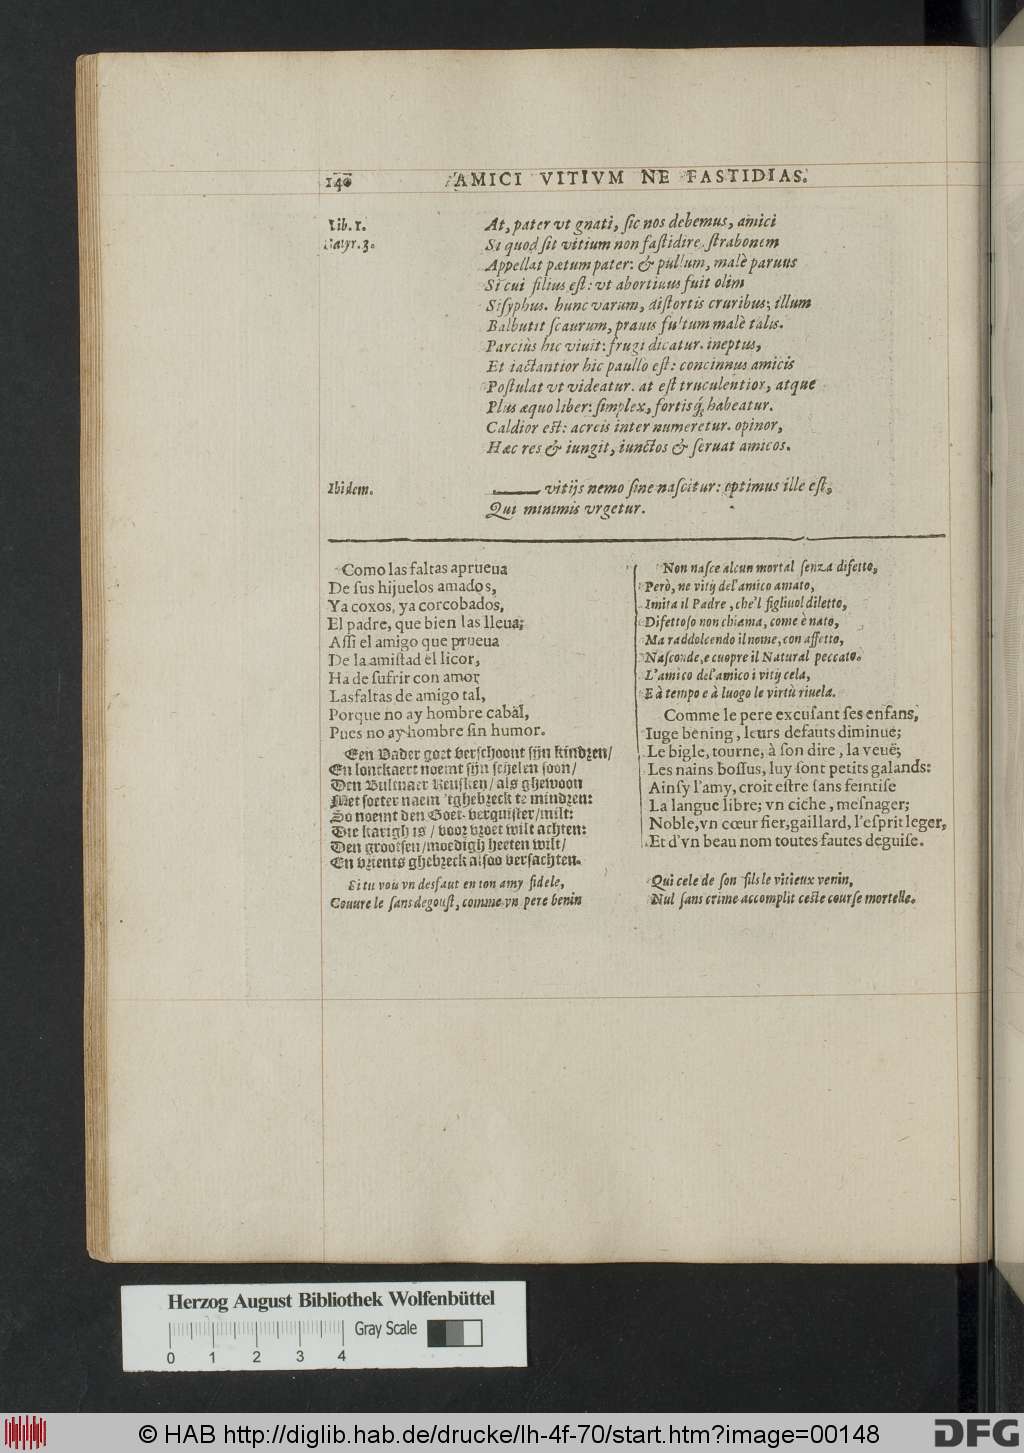 140
AMICI VITIVM NE FASTIDIAS.
Lib. 1.
Satyr. 3.
At, pater vt gnati, sic nos debemus, amici
Si quod sit vitium non fastidire, strabonem
Appellat pætum pater: & pullum, malè paruus
Si cui filius est: vt abortiuus fuit olim
Sisyphus. hunc varum, distortis cruribus; illum
Balbutit scaurum, prauis fultum malè talis.
Parciùs hic viuit: frugi dicatur. ineptus,
Et iactantior hic paullo est: concinnus amicis
Postulat vt videatur. at est truculentior, atque
Plus æquo liber: simplex, fortisq́; habeatur.
Caldior est: acreis inter numeretur. opinor,
Hæc res & iungit, iunctos & seruat amicos.
Ibidem.
——— vitijs nemo sine nascitur: optimus ille est,
Qui minimis vrgetur.
Como las faltas aprueua
De sus hijuelos amados,
Ya coxos, ya corcobados,
El padre, que bien las lleua;
Assi el amigo que prueua
De la amistad el licor,
Ha de sufrir con amor
Las faltas de amigo tal,
Porque no ay hombre cabàl,
Pues no ay hombre sin humor.
Een Vader goet verschoont sijn kindren/
En lonckaert noemt sijn schelen soon/
Den Bultnaer Keusken/ als ghewoon
Met soeter naem 'tghebreck te mindren:
So noemt den Goet-verquister/milt:
Die karigh is/ voor vroet wilt achten:
Den grootsen/moedigh heeten wilt/
En vrients ghebreck alsoo versachten.
Si tu vois vn desfaut en ton amy fidele,
Couure le sans degoust, comme vn pere benin
Non nasce alcun mortal senza difetto,
Però, ne vitij del'amico amato,
Imita il Padre, che'l figliuol diletto,
Difettoso non chiama, come è nato,
Ma raddolcendo il nome, con affetto,
Nasconde, e cuopre il Natural peccato.
L'amico del'amico i vitij cela,
E à tempo e à luogo le virtù riuela.
Comme le pere excusant ses enfans,
Iuge bening, leurs defauts diminuë;
Le bigle, tourne, à son dire, la veuë;
Les nains bossus, luy sont petits galands:
Ainsy l'amy, croit estre sans feintise
La langue libre; vn ciche, mesnager;
Noble, vn cœur fier, gaillard, l'esprit leger,
Et d'vn beau nom toutes fautes deguise.
Qui cele de son fils le vitieux venin,
Nul sans crime accomplit ceste course mortelle.
Herzog August Bibliothek Wolfenbüttel
Gray Scale
0 1 2 3 4
© HAB http://diglib.hab.de/drucke/lh-4f-70/start.htm?image=00148
DFG